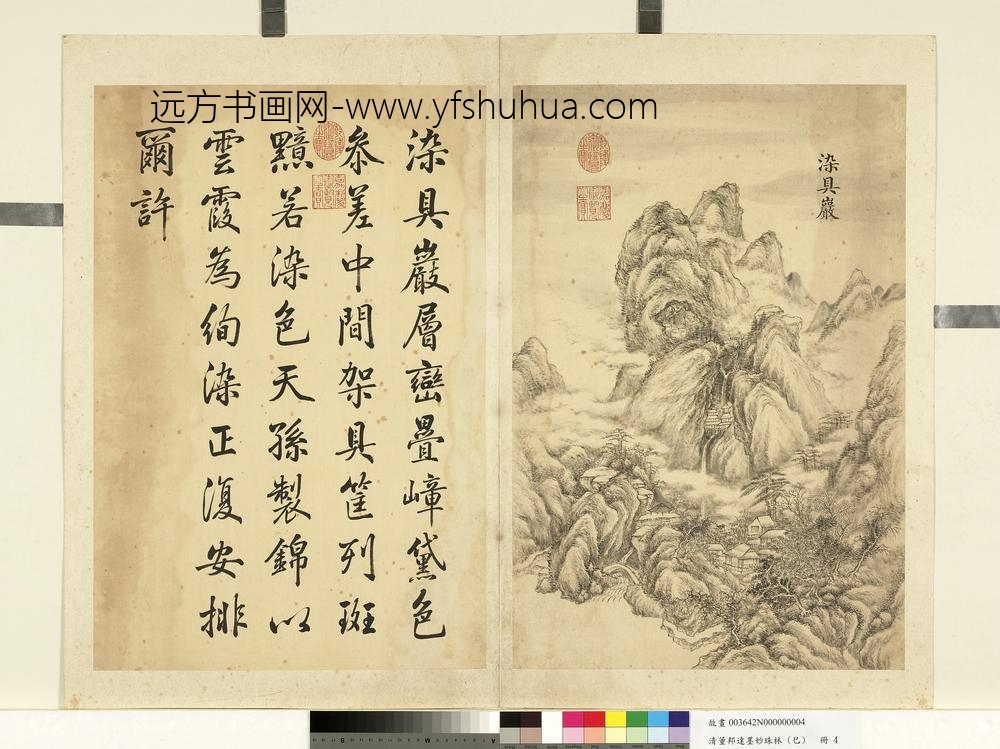 远方书画网-www.yfshuhua.com
染具巖
染具巖層巒疊嶂黛色
叅差中間架具筐列斑
黯若染色天孫製錦以
雲霞為絢染正復安排
爾許
故畫 003642N000000004
清董邦達墨妙珠林（巳） 冊 4